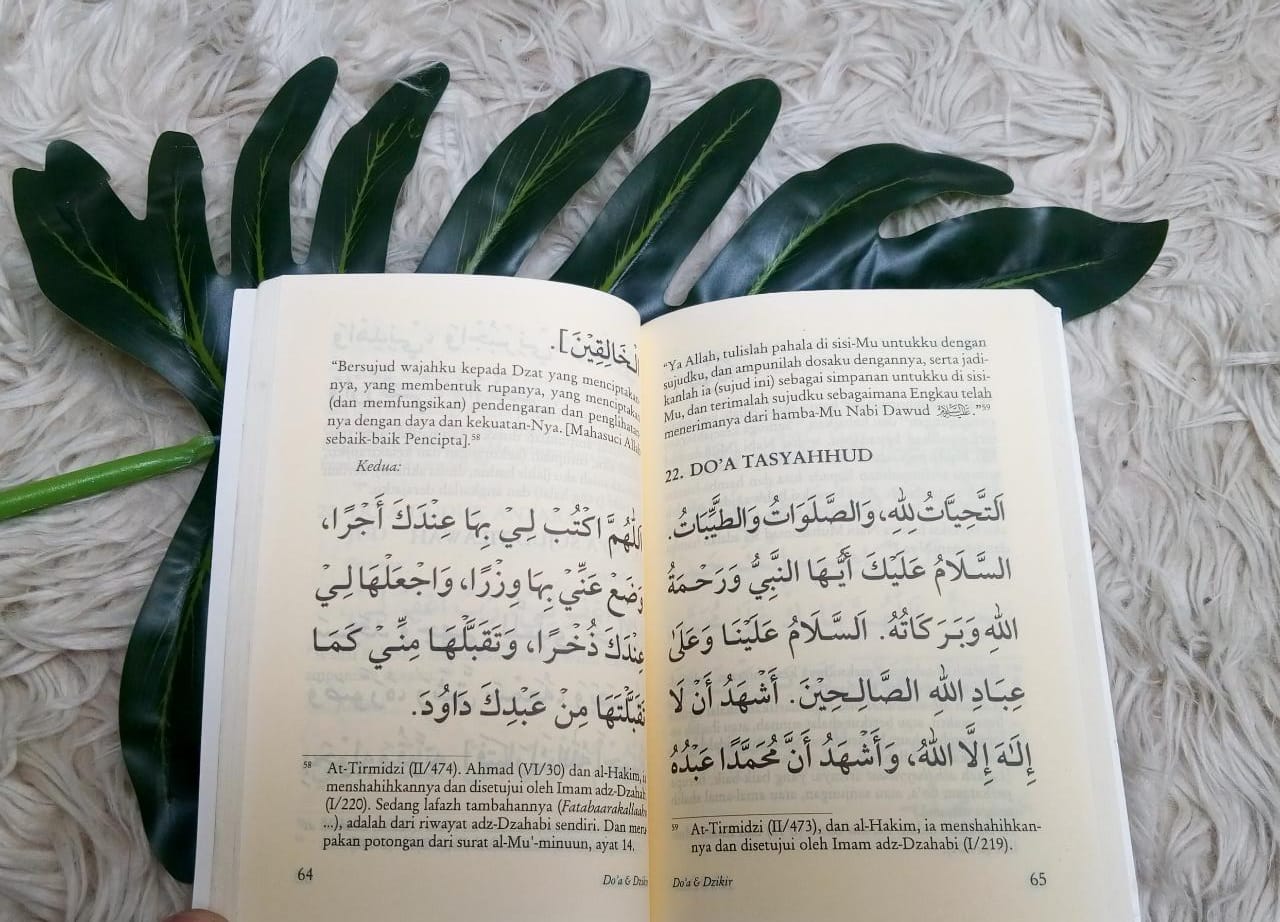 الْخَالِقِيْنَ].
"Bersujud wajahku kepada Dzat yang menciptakan-
nya, yang membentuk rupanya, yang menciptakan
(dan memfungsikan) pendengaran dan penglihatan-
nya dengan daya dan kekuatan-Nya. [Mahasuci Allah
sebaik-baik Pencipta].⁵⁸
Kedua:
اَللّٰهُمَّ اكْتُبْ لِيْ بِهَا عِنْدَكَ أَجْرًا،
وَضَعْ عَنِّيْ بِهَا وِزْرًا، وَاجْعَلْهَا لِيْ
عِنْدَكَ ذُخْرًا، وَتَقَبَّلْهَا مِنِّيْ كَمَا
تَقَبَّلْتَهَا مِنْ عَبْدِكَ دَاوُدَ.
58 At-Tirmidzi (II/474). Ahmad (VI/30) dan al-Hakim, ia
menshahihkannya dan disetujui oleh Imam adz-Dzahabi
(I/220). Sedang lafazh tambahannya (Fatabaarakallaahu
...), adalah dari riwayat adz-Dzahabi sendiri. Dan meru-
pakan potongan dari surat al-Mu'-minuun, ayat 14.
64
Do'a & Dzikir
"Ya Allah, tulislah pahala di sisi-Mu untukku dengan
sujudku, dan ampunilah dosaku dengannya, serta jadi-
kanlah ia (sujud ini) sebagai simpanan untukku di sisi-
Mu, dan terimalah sujudku sebagaimana Engkau telah
menerimanya dari hamba-Mu Nabi Dawud ."⁵⁹
22. DO'A TASYAHHUD
اَلتَّحِيَّاتُ لِلّٰهِ، وَالصَّلَوَاتُ وَالطَّيِّبَاتُ.
السَّلَامُ عَلَيْكَ أَيُّهَا النَّبِيُّ وَرَحْمَةُ
اللهِ وَبَرَكَاتُهُ. اَلسَّلَامُ عَلَيْنَا وَعَلَى
عِبَادِ اللهِ الصَّالِحِيْنَ. أَشْهَدُ أَنْ لَا
إِلٰهَ إِلَّا اللهُ، وَأَشْهَدُ أَنَّ مُحَمَّدًا عَبْدُهُ
59 At-Tirmidzi (II/473), dan al-Hakim, ia menshahihkan-
nya dan disetujui oleh Imam adz-Dzahabi (I/219).
Do'a & Dzikir
65